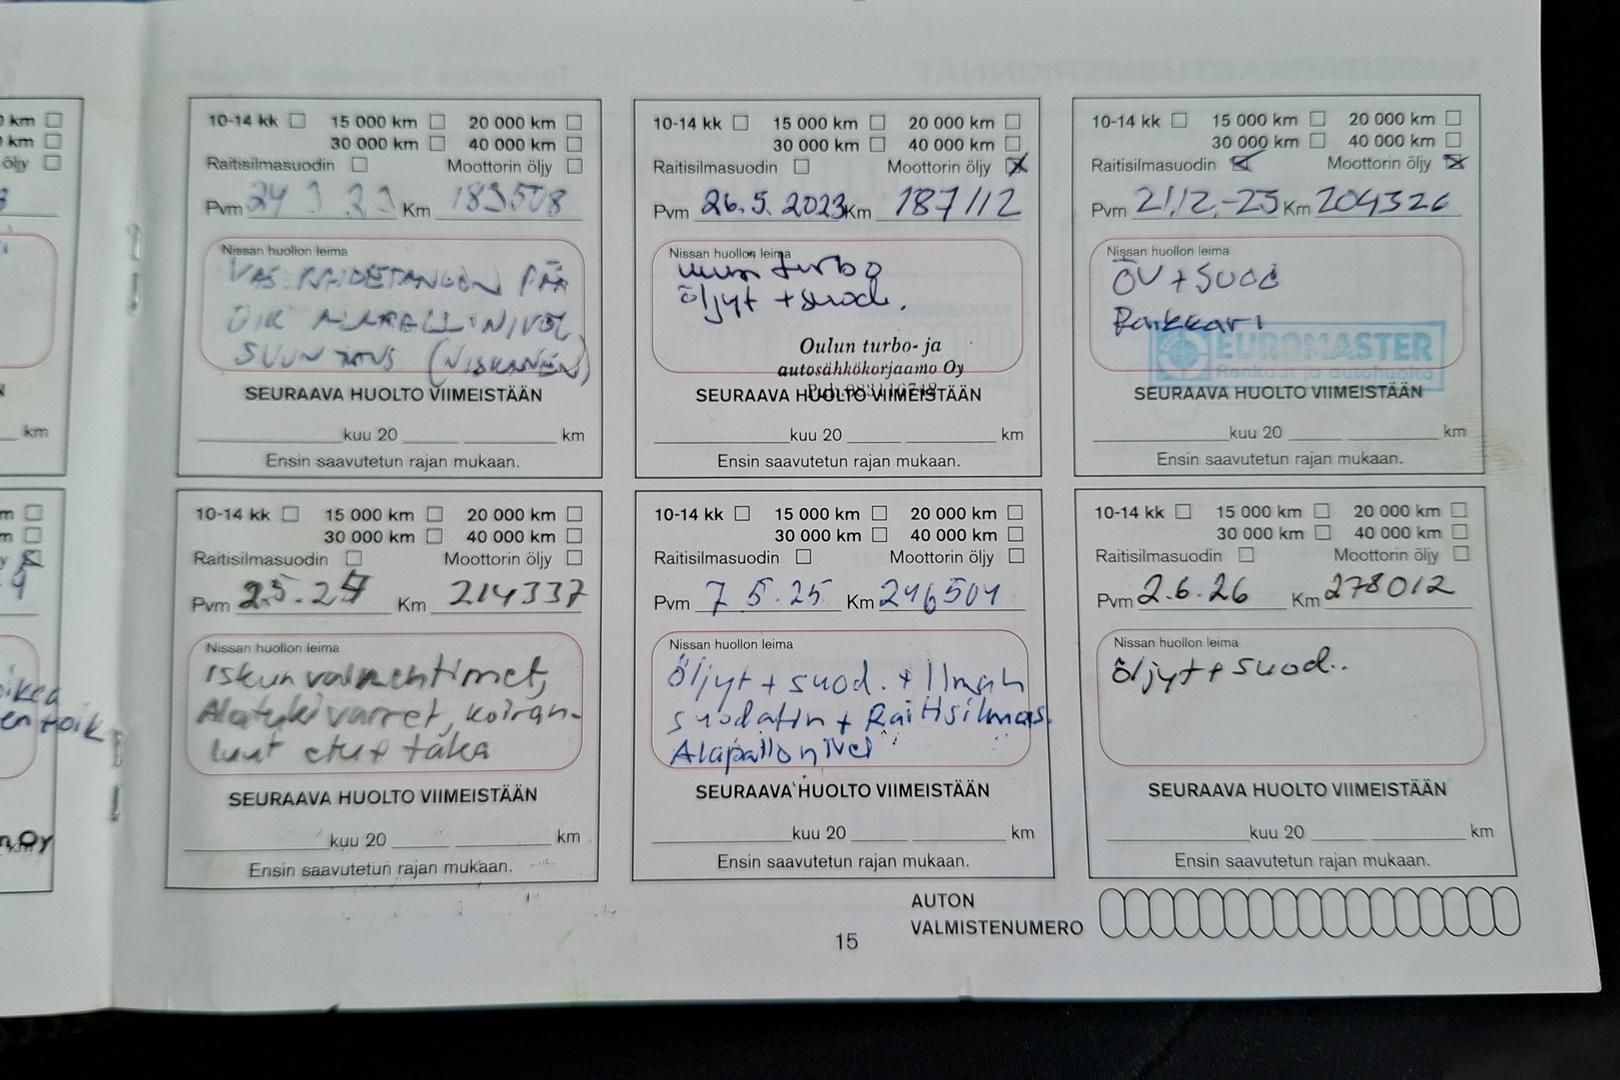 km
km
öljy
km
ikea
en toik
n Oy
10-14 kk 15 000 km 20 000 km
30 000 km 40 000 km
Raitisilmasuodin Moottorin öljy
Pvm 24 3 23 Km 183508
Nissan huollon leima
VAS. RAIDETANGON PÄÄ
OIK ALAPALLONIVEL
SUUNTAUS (NISKANEN)
SEURAAVA HUOLTO VIIMEISTÄÄN
kuu 20 km
Ensin saavutetun rajan mukaan.
10-14 kk 15 000 km 20 000 km
30 000 km 40 000 km
Raitisilmasuodin Moottorin öljy
Pvm 26.5.2023 Km 187112
Nissan huollon leima
uusi turbo
öljyt + suod.
Oulun turbo- ja
autosähkökorjaamo Oy
SEURAAVA HUOLTO VIIMEISTÄÄN
kuu 20 km
Ensin saavutetun rajan mukaan.
10-14 kk 15 000 km 20 000 km
30 000 km 40 000 km
Raitisilmasuodin Moottorin öljy
Pvm 21.12.-23 Km 204326
Nissan huollon leima
ÖV + SUOD
Raikkari
EUROMASTER
Renkaat ja autohuolto
SEURAAVA HUOLTO VIIMEISTÄÄN
kuu 20 km
Ensin saavutetun rajan mukaan.
10-14 kk 15 000 km 20 000 km
30 000 km 40 000 km
Raitisilmasuodin Moottorin öljy
Pvm 2.5.24 Km 214337
Nissan huollon leima
Iskunvaimentimet,
Alatukivarret, koiran-
luut etu + taka
SEURAAVA HUOLTO VIIMEISTÄÄN
kuu 20 km
Ensin saavutetun rajan mukaan.
10-14 kk 15 000 km 20 000 km
30 000 km 40 000 km
Raitisilmasuodin Moottorin öljy
Pvm 7 5.25 Km 246504
Nissan huollon leima
Öljyt + suod. + Ilman
suodatin + Raitisilmas.
Alapallonivel
SEURAAVA HUOLTO VIIMEISTÄÄN
kuu 20 km
Ensin saavutetun rajan mukaan.
10-14 kk 15 000 km 20 000 km
30 000 km 40 000 km
Raitisilmasuodin Moottorin öljy
Pvm 2.6.26 Km 278012
Nissan huollon leima
Öljyt + suod..
SEURAAVA HUOLTO VIIMEISTÄÄN
kuu 20 km
Ensin saavutetun rajan mukaan.
AUTON
VALMISTENUMERO
15